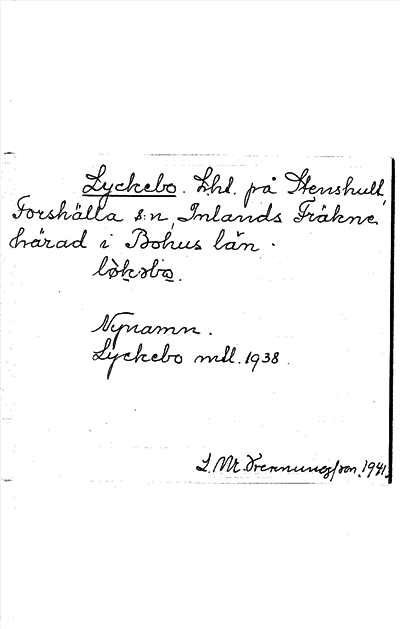 Lyckebo. Lht. på Stenshult,
Forshälla s:n, Inlands Fräkne
härad i Bohus län.
Nynamn.
Lyckebo mtl. 1938.
1941.